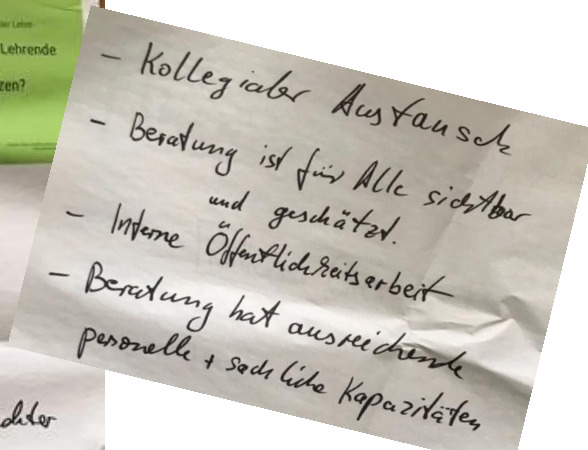 Lehrende
zen?
- Kollegialer Austausch
- Beratung ist für Alle sichtbar
und geschätzt.
- Interne Öffentlichkeitsarbeit
- Beratung hat ausreichende
personelle + sachliche Kapazitäten